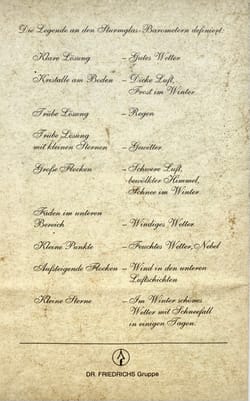 Die Legende an den Sturmglas-Barometern definiert:
Klare Lösung – Gutes Wetter
Kristalle am Boden – Dicke Luft,
Frost im Winter
Trübe Lösung – Regen
Trübe Lösung
mit kleinen Sternen – Gewitter
Große Flocken – Schwere Luft,
bewölkter Himmel,
Schnee im Winter
Fäden im unteren
Bereich – Windiges Wetter
Kleine Punkte – Feuchtes Wetter, Nebel
Aufsteigende Flocken – Wind in den unteren
Luftschichten
Kleine Sterne – Im Winter schönes
Wetter mit Schneefall
in einigen Tagen.
DR. FRIEDRICHS Gruppe